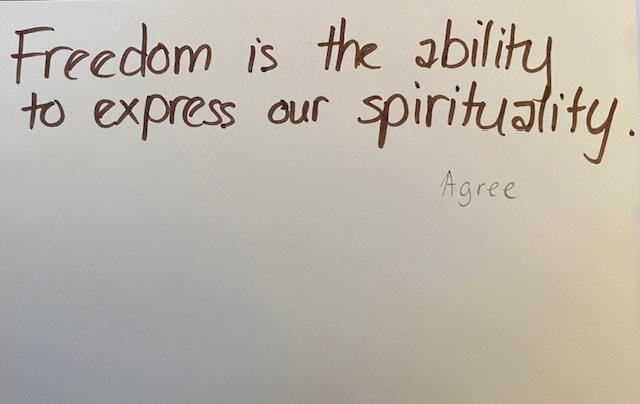 Freedom is the ability
to express our spirituality.
Agree